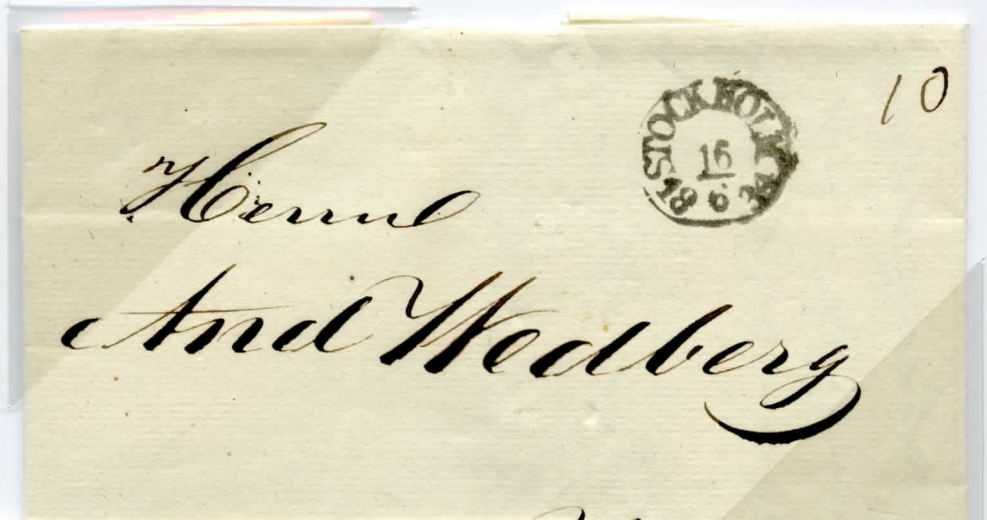 10
STOCKHOLM
16
6
Herrn
And Wedberg